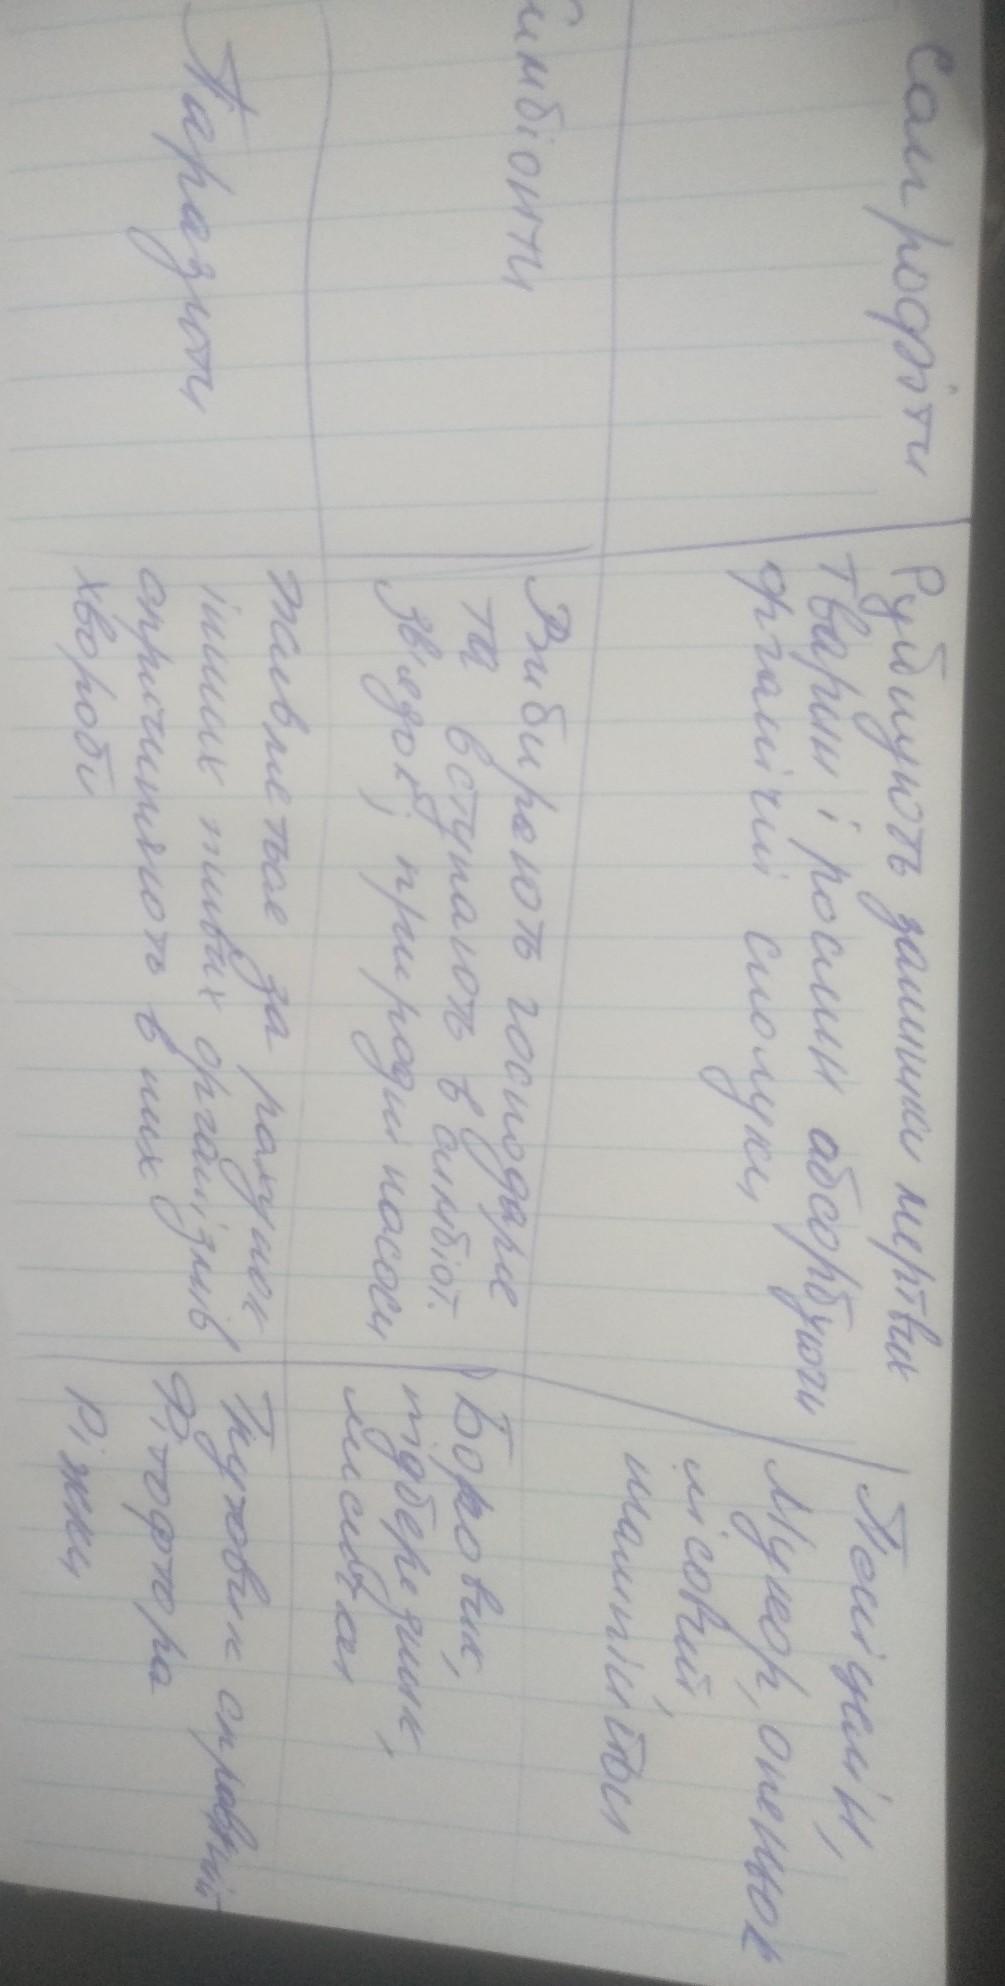 Сапрофіти
Руйнують залишки мертвих
тварин і рослин абсорбуючи
органічні сполуки
Пеніцилін,
Мукор, опеньок
лісовий,
шампіньйон
Симбіонти
Вибирають господаря
та вступають в симбіот.
зв'язок, природні насоси
Боровик,
підберезник,
лисичка
Паразити
живляться за рахунок
інших живих організмів
спричиняють в них
хвороби
Трутовик справжній
Фітофтора
Ріжки